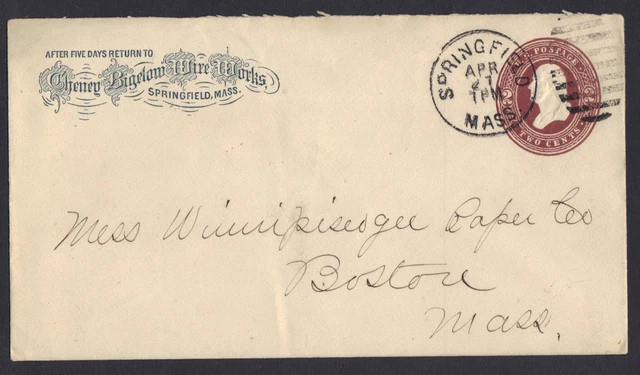 AFTER FIVE DAYS RETURN TO
Cheney Bigelow Wire Works
SPRINGFIELD, MASS.
SPRINGFIELD
APR
1 PM
MASS
POSTAGE
TWO CENTS
Mess Winnipiseogee Paper Co
Boston
Mass.